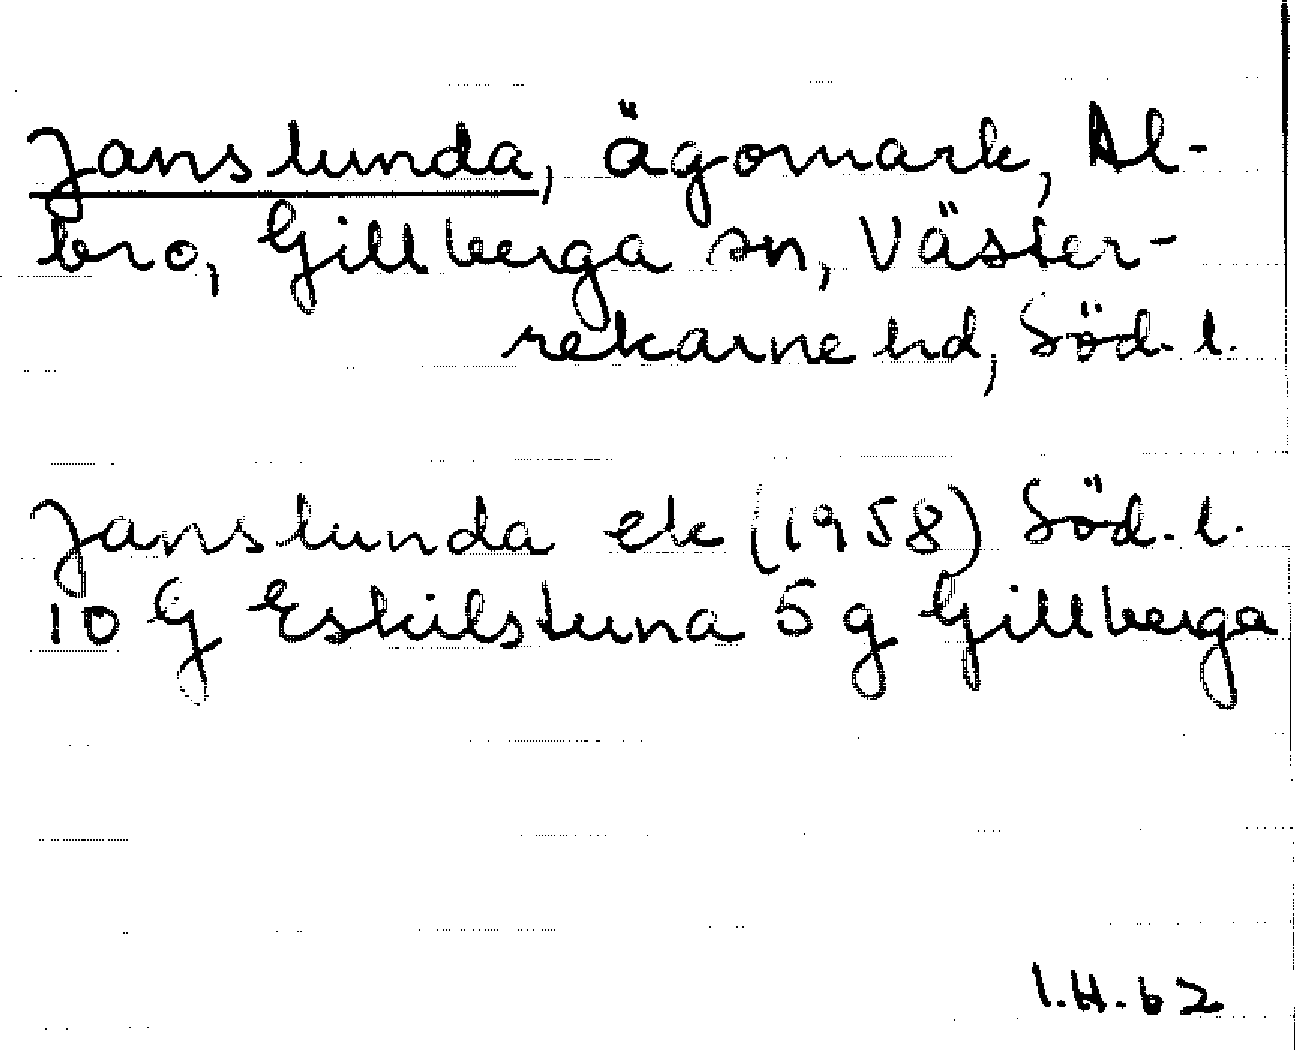 Janslunda, ägomark, Al-
bro, Gillberga sn, Väster-
rekarne hd, Söd. l.
Janslunda ek (1958) Söd. l.
10 G Eskilstuna 5 g Gillberga
I.H.62